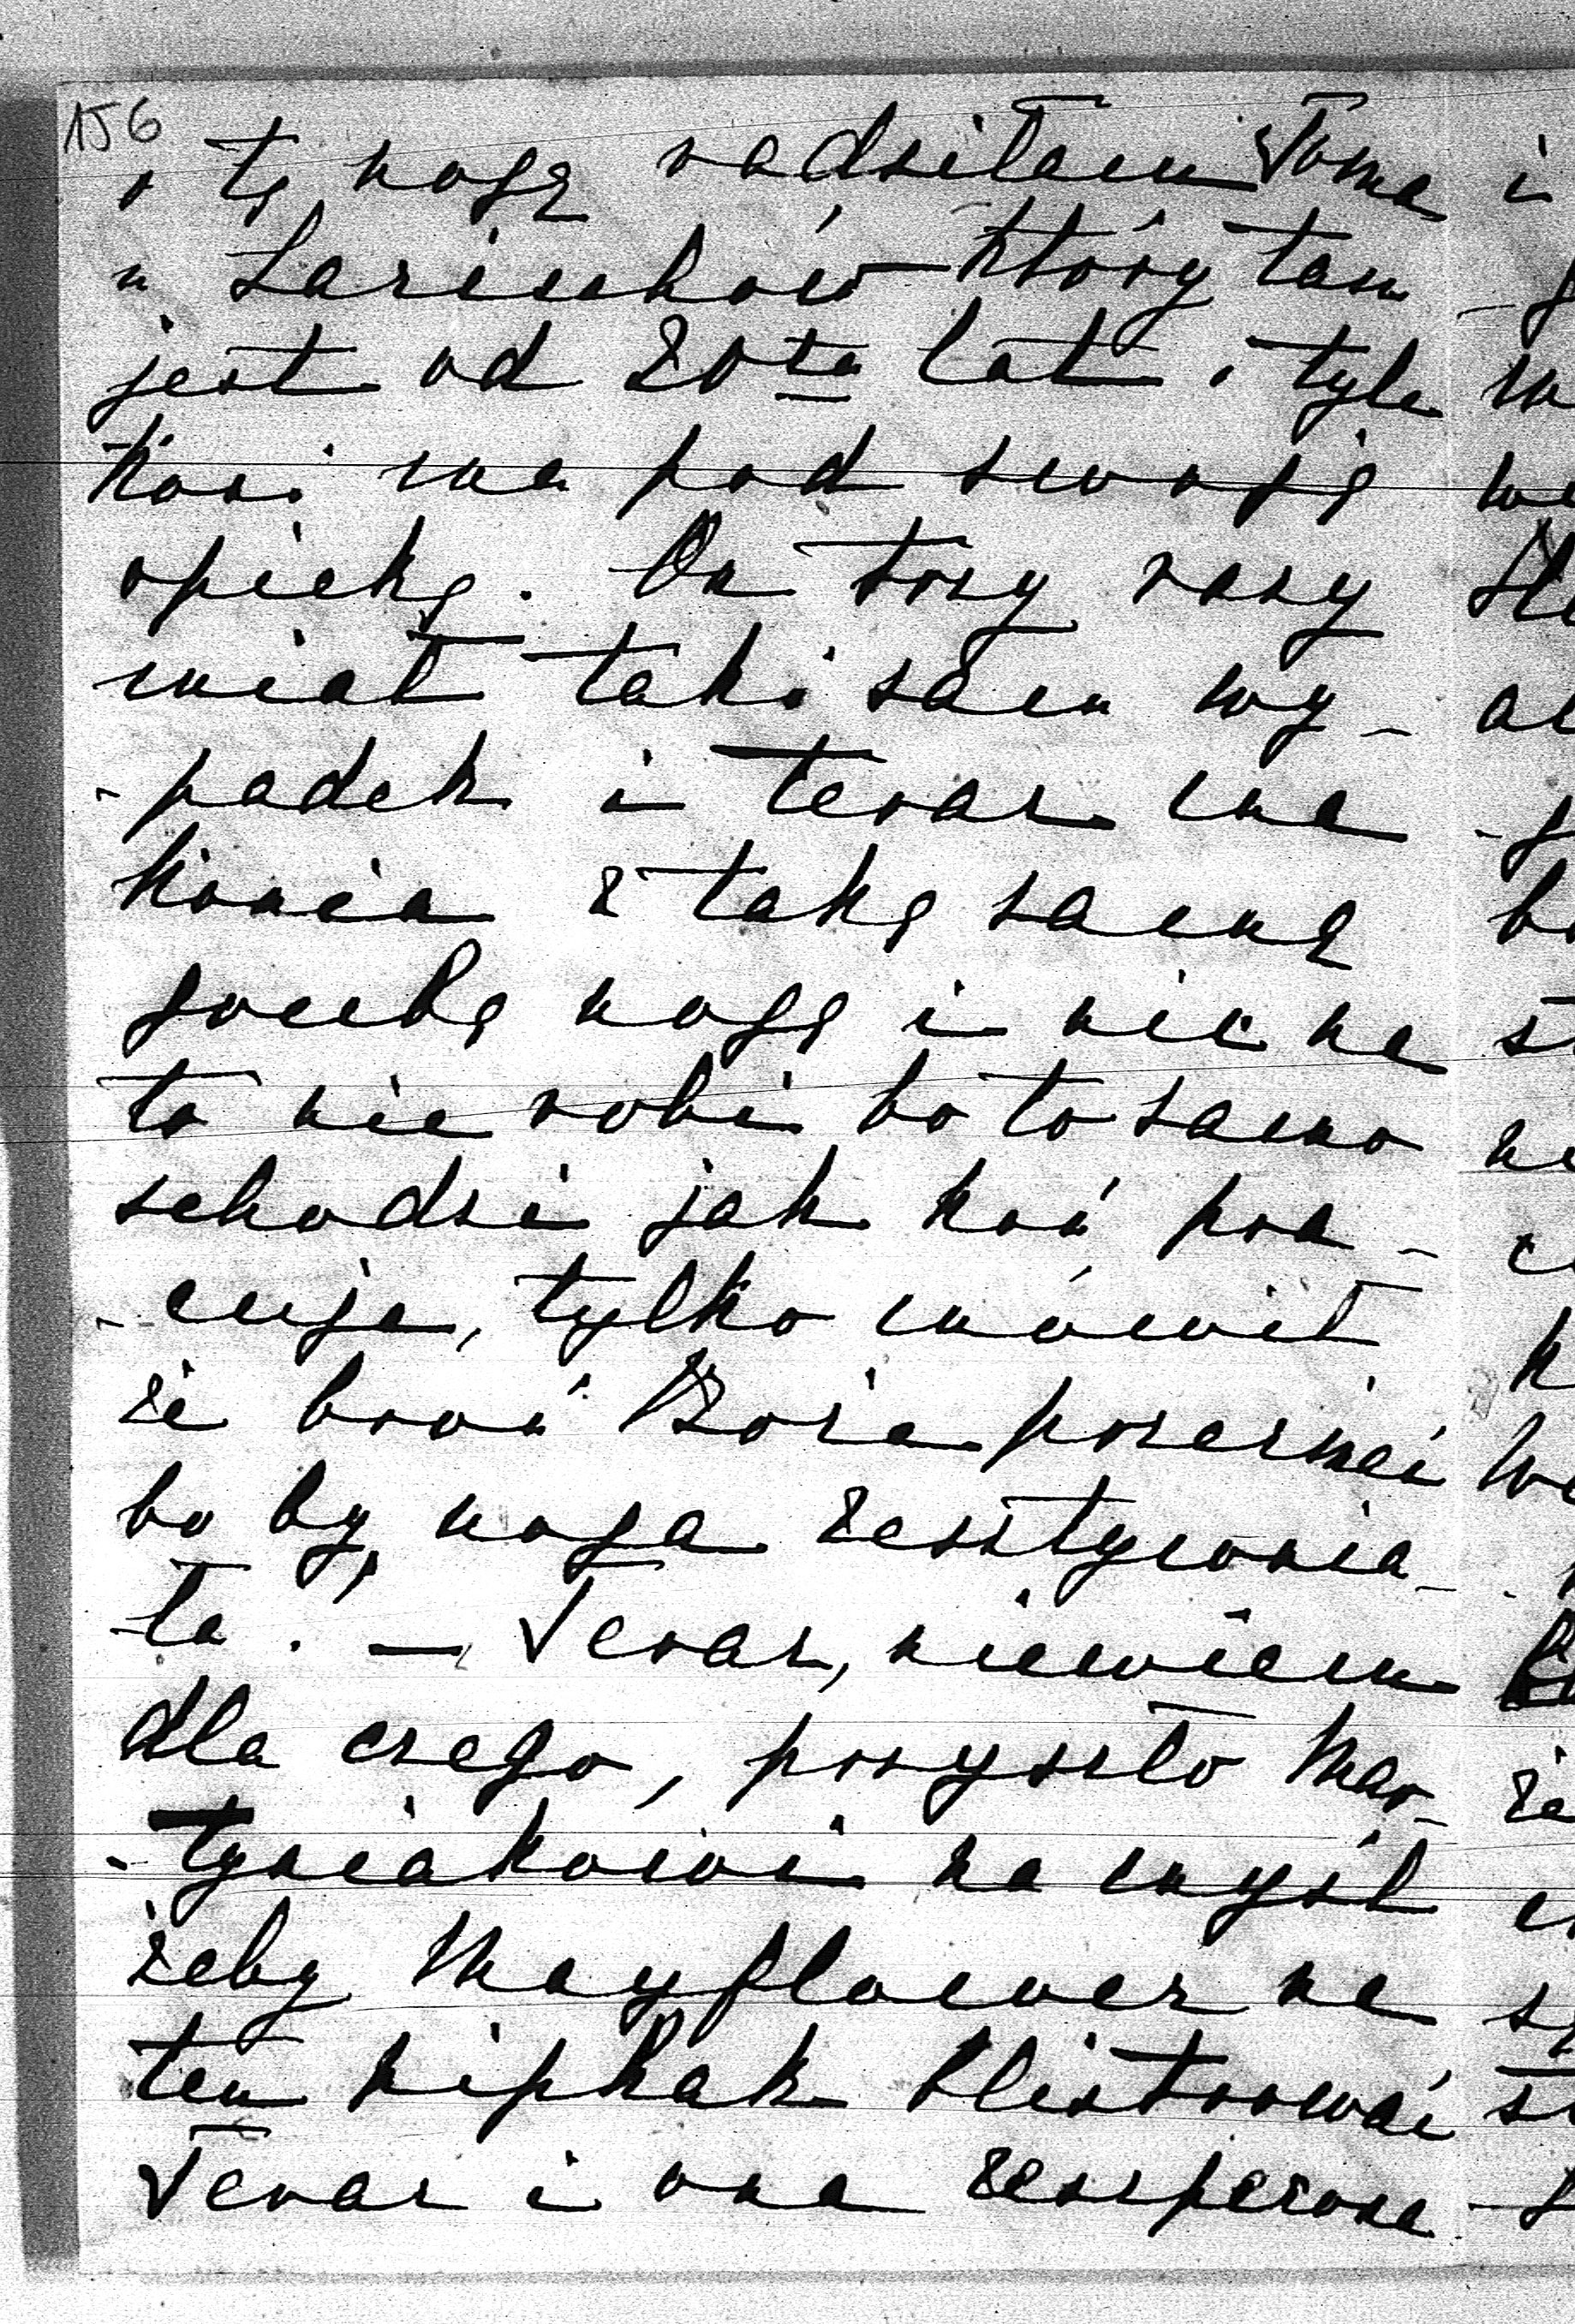 156
o tę nogę radziłem Toma i
u Larischów który tam
jest od 20tu lat i tyle
koni ma pod swoję
opiekę. On trzy razy
miał taki sam wy-
-padek i teraz ma
konia z takę samę
grubę nogę i nic na
to nie robi bo to samo
schodzi jak koń pra-
-cuje, tylko mówił
że broń Boże przerznać
bo by noga zesztywnia-
ła. — Teraz, niewiem
dla czego, przyszło Mar-
-tyniakowi na myśl
żeby Mayflower na
ten nipkak blistrować
Teraz i ona zeszperona